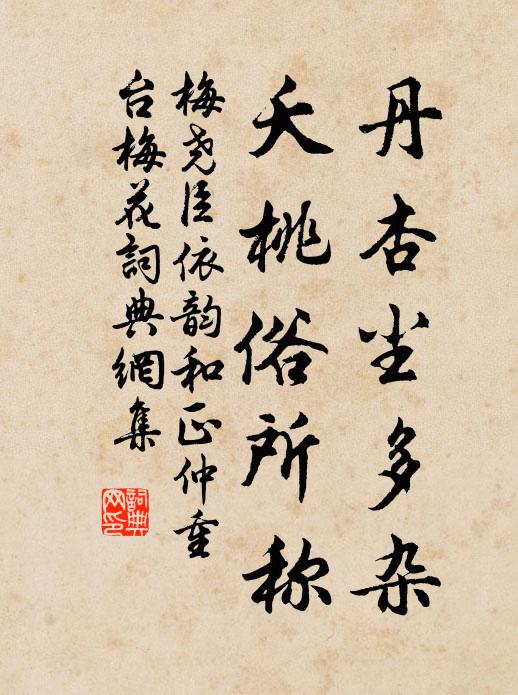 丹杏尘多杂
夭桃俗所称
梅尧臣依韵和正仲重
台梅花詞典網集
詞典网印